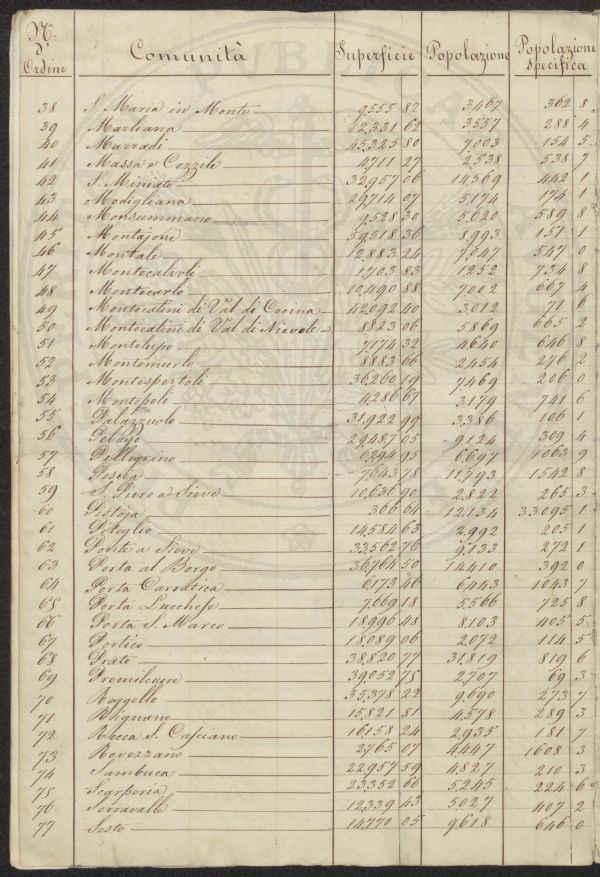 N.° d'Ordine Comunità Superficie Popolazione Popolazione specifica
38 S. Maria in Monte 9555 82 3467 362 8
39 Marliana 12331 62 3557 288 4
40 Marradi 45325 80 7003 154 5
41 Massa e Cozzile 4711 27 2538 538 7
42 S. Miniato 32957 06 14569 442 1
43 Modigliana 29714 07 5174 174 1
44 Monsummano 9528 30 5620 589 8
45 Montajone 59518 36 8993 151 1
46 Montale 12883 24 7047 547 0
47 Montecalvoli 1703 83 1252 734 8
48 Montecarlo 10490 88 7002 667 4
49 Montecatini di Val di Cecina 42092 40 3012 71 6
50 Montecatini di Val di Nievole 8823 06 5869 665 2
51 Montelupo 7174 32 4640 646 8
52 Montemurlo 8883 66 2454 276 2
53 Montespertoli 36260 19 7469 206 0
54 Montopoli 4286 67 3179 741 6
55 Palazzuolo 31922 99 3386 106 1
56 Pelago 29487 05 9124 309 4
57 Pellegrino 6294 95 6697 1063 9
58 Pescia 7643 78 11793 1542 8
59 S. Piero a Sieve 10636 90 2822 265 3
60 Pistoja 366 64 12134 33095 1
61 Piteglio 14584 63 2992 205 1
62 Ponte a Sieve 33562 76 9133 272 1
63 Porta al Borgo 36761 50 14410 392 0
64 Porta Carratica 6173 46 6443 1043 7
65 Porta Lucchese 7669 18 5566 725 8
66 Porta S. Marco 19980 48 8103 405 5
67 Portico 18089 06 2072 114 5
68 Prato 38820 77 31819 819 6
69 Premilcuore 39052 75 2707 69 3
70 Reggello 35378 22 9690 273 7
71 Rignano 15821 81 4578 289 3
72 Rocca S. Casciano 16158 24 2935 181 7
73 Rovezzano 2765 07 4447 1608 3
74 Sambuca 22957 59 4827 210 3
75 Scarperia 23352 66 5245 224 6
76 Serravalle 12339 43 5027 407 2
77 Sesto 14770 05 9618 646 0